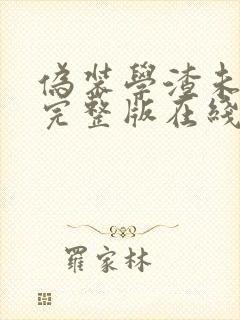 偽裝學渣未
完整版在綫
羅家林